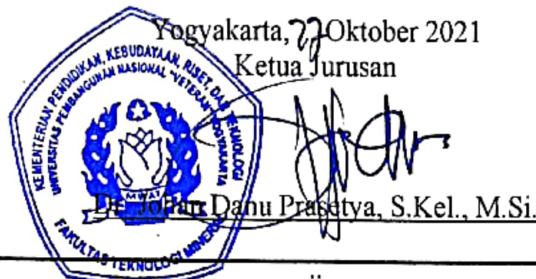 Yogyakarta, 27 Oktober 2021
Ketua Jurusan
KEMENTERIAN PENDIDIKAN, KEBUDAYAAN, RISET, DAN TEKNOLOGI
UNIVERSITAS PEMBANGUNAN NASIONAL "VETERAN" YOGYAKARTA
WIMAYA
FAKULTAS TEKNOLOGI MINERAL
Dr. Johan Danu Prasetya, S.Kel., M.Si.